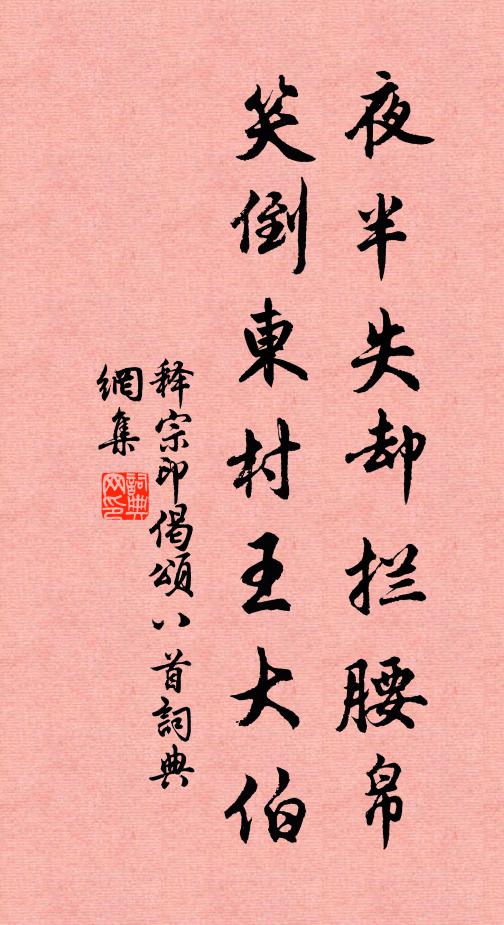 夜半失却拦腰帛
笑倒東村王大伯
释宗印偈頌八首詞典
網集
詞典
网印